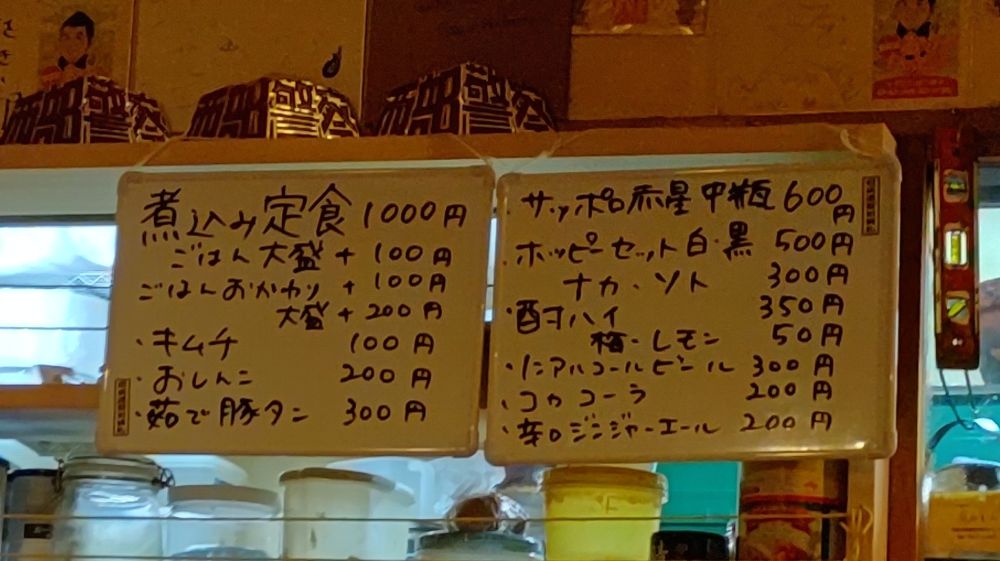 西部警察
西部警察
西部警察
煮込み定食 1000円
ごはん大盛 + 100円
ごはんおかわり + 100円
大盛 + 200円
・キムチ 100円
・おしんこ 200円
・茹で豚タン 300円
・サッポロ赤星中瓶 600円
・ホッピーセット白・黒 500円
ナカ・ソト 300円
・酎ハイ 350円
梅・レモン 50円
・ノンアルコールビール 300円
・コカコーラ 200円
・辛口ジンジャーエール 200円